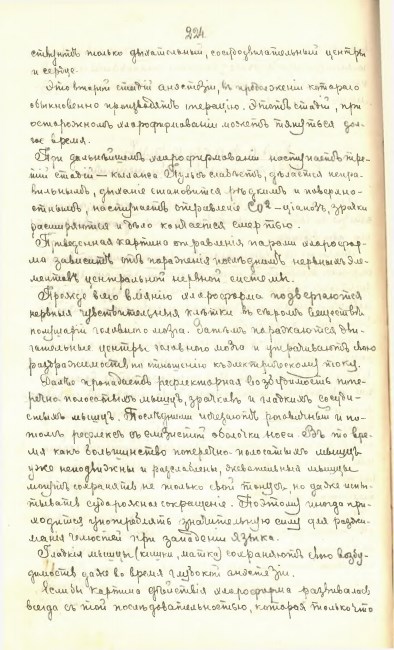 224
ствуютъ только дыхательный, сосудодвигательный центры
и сердце.
Это второй стадій анестезіи, въ продолженіи котораго
обыкновенно производятъ операцію. Этотъ стадій, при
осторожномъ хлороформированіи можетъ тянуться дол-
гое время.
При дальнѣйшемъ хлороформированіи наступаетъ тре-
тій стадій — коллапса. Пульсъ слабѣетъ, дѣлается непра-
вильнымъ, дыханіе становится рѣдкимъ и поверхно-
стнымъ, наступаетъ отравленіе CO2 - ціанозъ, зрачки
расширяются и дѣло кончается смертью.
Приведенная картина отравленія парами хлорофор-
ма зависитъ отъ пораженія послѣднимъ нервныхъ эле-
ментовъ центральной нервной системы.
Прежде всего вліянію хлороформа подвергаются
нервныя чувствительныя клѣтки въ сѣромъ веществѣ
полушарій головного мозга. Затѣмъ поражаются дви-
гательные центры головного мозга и утрачиваютъ свою
раздражимость по отношенію къ электрическому току.
Далѣе пропадаетъ рефлекторная возбудимость попе-
речно-полосатыхъ мышцъ, зрачковъ и гладкихъ сосуди-
стыхъ мышцъ. Послѣдними исчезаютъ роговичный и по-
томъ рефлексъ съ слизистой оболочки носа. Въ то вре-
мя какъ большинство поперечно-полосатыхъ мышцъ
уже неподвижны и разслаблены, жевательныя мышцы
могутъ сохранять не только свой тонусъ, но даже испы-
тывать судорожное сокращеніе. Поэтому иногда при-
ходится употреблять значительную силу для разжи-
манія челюстей при западеніи языка.
Гладкія мышцы (кишки, матка) сохраняютъ свою возбу-
димость даже во время глубокой анестезіи.
Если бы картина дѣйствія хлороформа развивалась
всегда съ той послѣдовательностью, которая только что